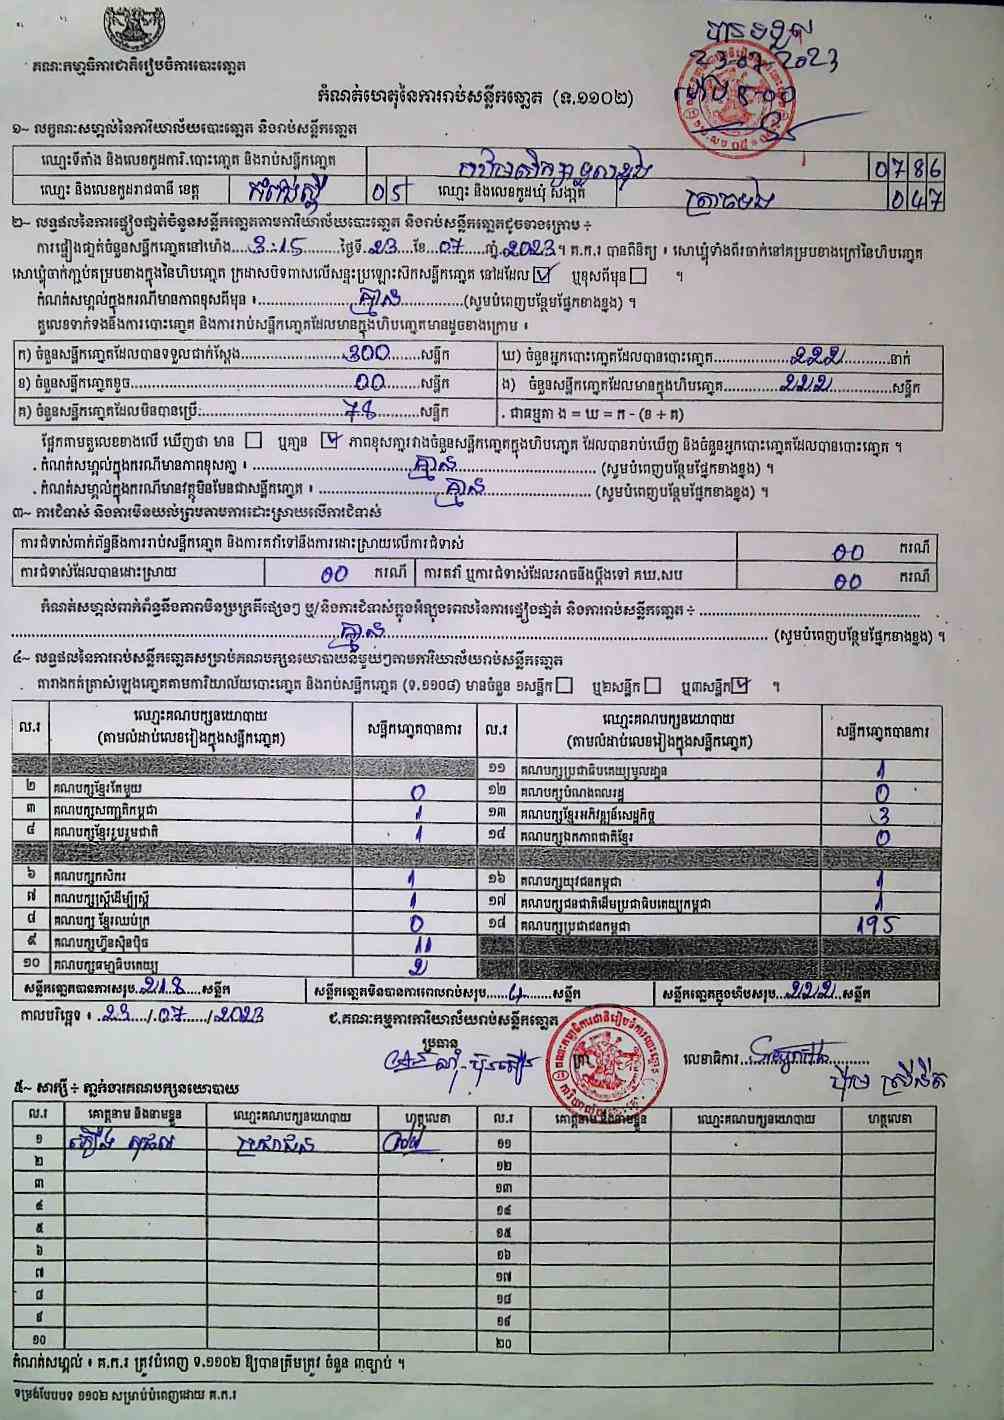 បានទទួល
23-07-2023
ម៉ោង ៩-០០
គណៈកម្មាធិការជាតិរៀបចំការបោះឆ្នោត
កំណត់ហេតុនៃការរាប់សន្លឹកឆ្នោត (ទ.១១០២)
១~ លក្ខណៈសម្គាល់នៃការិយាល័យបោះឆ្នោត និងរាប់សន្លឹកឆ្នោត
ឈ្មោះទីតាំង និងលេខកូដការិ.បោះឆ្នោត និងរាប់សន្លឹកឆ្នោត 0786
ឈ្មោះ និងលេខកូដរាជធានី ខេត្ត កំពង់ស្ពឺ 05 ឈ្មោះ និងលេខកូដឃុំ សង្កាត់ 047
២~ លទ្ធផលនៃការផ្ទៀងផ្ទាត់ចំនួនសន្លឹកឆ្នោតតាមការិយាល័យបោះឆ្នោត និងរាប់សន្លឹកឆ្នោតដូចខាងក្រោម ÷
ការផ្ទៀងផ្ទាត់ចំនួនសន្លឹកឆ្នោតនៅម៉ោង 3:15 ថ្ងៃទី 23 ខែ 07 ឆ្នាំ 2023 ។ គ.ក.រ បានពិនិត្យ ៖ សោឃ្លុំទាំងពីរចាក់នៅគម្របខាងក្រៅនៃហិបឆ្នោត
សោឃ្លុំចាក់ភ្ជាប់គម្របខាងក្នុងនៃហិបឆ្នោត ក្រដាសបិទពាសលើសន្ទះប្រឡោះសិកសន្លឹកឆ្នោត នៅដដែល ☑ ឬខុសពីមុន ☐ ។
កំណត់សម្គាល់ក្នុងករណីមានភាពខុសពីមុន ៖ គ្មាន (សូមបំពេញបន្ថែមផ្នែកខាងខ្នង) ។
តួលេខទាក់ទងនឹងការបោះឆ្នោត និងការរាប់សន្លឹកឆ្នោតដែលមានក្នុងហិបឆ្នោតមានដូចខាងក្រោម ៖
ក) ចំនួនសន្លឹកឆ្នោតដែលបានទទួលជាក់ស្តែង 300 សន្លឹក ឃ) ចំនួនអ្នកបោះឆ្នោតដែលបានបោះឆ្នោត 222 នាក់
ខ) ចំនួនសន្លឹកឆ្នោតខូច 00 សន្លឹក ង) ចំនួនសន្លឹកឆ្នោតដែលមានក្នុងហិបឆ្នោត 222 សន្លឹក
គ) ចំនួនសន្លឹកឆ្នោតដែលមិនបានប្រើ: 78 សន្លឹក . ជាធម្មតា ង = ឃ = ក - (ខ + គ)
ផ្អែកតាមតួលេខខាងលើ ឃើញថា មាន ☐ ឬគ្មាន ☑ ភាពខុសគ្នារវាងចំនួនសន្លឹកឆ្នោតក្នុងហិបឆ្នោត ដែលបានរាប់ឃើញ និងចំនួនអ្នកបោះឆ្នោតដែលបានបោះឆ្នោត ។
. កំណត់សម្គាល់ក្នុងករណីមានភាពខុសគ្នា ៖ គ្មាន (សូមបំពេញបន្ថែមផ្នែកខាងខ្នង) ។
. កំណត់សម្គាល់ក្នុងករណីមានវត្ថុមិនមែនជាសន្លឹកឆ្នោត ៖ គ្មាន (សូមបំពេញបន្ថែមផ្នែកខាងខ្នង) ។
៣~ ការជំទាស់ និងការមិនយល់ព្រមតាមការដោះស្រាយលើការជំទាស់
ការជំទាស់ពាក់ព័ន្ធនឹងការរាប់សន្លឹកឆ្នោត និងការតវ៉ាទៅនឹងការដោះស្រាយលើការជំទាស់ 00 ករណី
ការជំទាស់ដែលបានដោះស្រាយ 00 ករណី ការតវ៉ា ឬការជំទាស់ដែលអាចនឹងប្តឹងទៅ គឃ.សប 00 ករណី
កំណត់សម្គាល់ពាក់ព័ន្ធនឹងភាពមិនប្រក្រតីផ្សេងៗ ឬ/និងការជំទាស់ក្នុងអំឡុងពេលនៃការផ្ទៀងផ្ទាត់ និងការរាប់សន្លឹកឆ្នោត ÷
គ្មាន (សូមបំពេញបន្ថែមផ្នែកខាងខ្នង) ។
៤~ លទ្ធផលនៃការរាប់សន្លឹកឆ្នោតសម្រាប់គណបក្សនយោបាយនីមួយៗតាមការិយាល័យរាប់សន្លឹកឆ្នោត
តារាងកត់ត្រាសំឡេងឆ្នោតតាមការិយាល័យបោះឆ្នោត និងរាប់សន្លឹកឆ្នោត (ទ.១១០៨) មានចំនួន ១សន្លឹក ☐ ឬ២សន្លឹក ☐ ឬ៣សន្លឹក ☑ ។
ល.រ ឈ្មោះគណបក្សនយោបាយ (តាមលំដាប់លេខរៀងក្នុងសន្លឹកឆ្នោត) សន្លឹកឆ្នោតបានការ ល.រ ឈ្មោះគណបក្សនយោបាយ (តាមលំដាប់លេខរៀងក្នុងសន្លឹកឆ្នោត) សន្លឹកឆ្នោតបានការ
១១ គណបក្សប្រជាធិបតេយ្យមូលដ្ឋាន 1
២ គណបក្សខ្មែរតែមួយ 0 ១២ គណបក្សបំណងពលរដ្ឋ 0
៣ គណបក្សសញ្ជាតិកម្ពុជា 1 ១៣ គណបក្សខ្មែរអភិវឌ្ឍន៍សេដ្ឋកិច្ច 3
៤ គណបក្សខ្មែររួបរួមជាតិ 1 ១៤ គណបក្សឯកភាពជាតិខ្មែរ 0
៦ គណបក្សកសិករ 1 ១៦ គណបក្សយុវជនកម្ពុជា 1
៧ គណបក្សស្ត្រីដើម្បីស្ត្រី 1 ១៧ គណបក្សជនជាតិដើមប្រជាធិបតេយ្យកម្ពុជា 1
៨ គណបក្ស ខ្មែរឈប់ក្រ 0 ១៨ គណបក្សប្រជាជនកម្ពុជា 195
៩ គណបក្សហ៊្វុនស៊ិនប៉ិច 11
១០ គណបក្សធម្មាធិបតេយ្យ 2
សន្លឹកឆ្នោតបានការសរុប 218 សន្លឹក សន្លឹកឆ្នោតមិនបានការពេលរាប់សរុប 4 សន្លឹក សន្លឹកឆ្នោតក្នុងហិបសរុប 222 សន្លឹក
កាលបរិច្ឆេទ ៖ 23/07/2023 ជ.គណៈកម្មការការិយាល័យរាប់សន្លឹកឆ្នោត
ប្រធាន ត្រា លេខាធិការ
៥~ សាក្សី ÷ ភ្នាក់ងារគណបក្សនយោបាយ
ល.រ គោត្តនាម និងនាមខ្លួន ឈ្មោះគណបក្សនយោបាយ ហត្ថលេខា ល.រ គោត្តនាម និងនាមខ្លួន ឈ្មោះគណបក្សនយោបាយ ហត្ថលេខា
១ ប្រជាជន ១១
២ ១២
៣ ១៣
៤ ១៤
៥ ១៥
៦ ១៦
៧ ១៧
៨ ១៨
៩ ១៩
១០ ២០
កំណត់សម្គាល់ ៖ គ.ក.រ ត្រូវបំពេញ ទ.១១០២ ឱ្យបានត្រឹមត្រូវ ចំនួន ៣ច្បាប់ ។
ទម្រង់បែបបទ ១១០២ សម្រាប់បំពេញដោយ គ.ក.រ